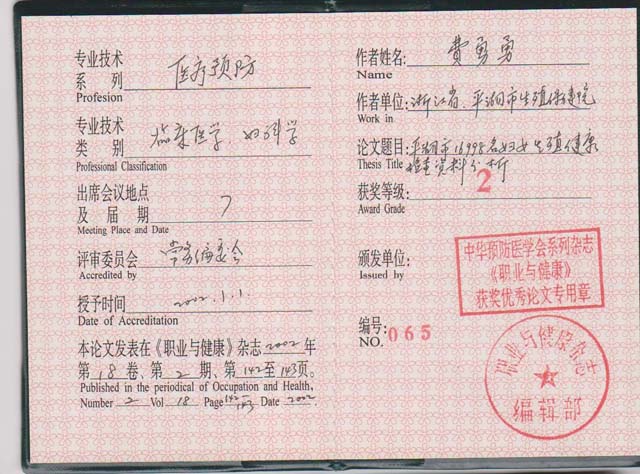 专业技术
系列 医疗预防
Profesion
专业技术
类别 临床医学、妇科学
Professional Classification
出席会议地点
及届期 7
Meeting Place and Date
评审委员会 常务编委会
Accredited by
授予时间 2002.1.1.
Date of Accreditation
本论文发表在《职业与健康》杂志2002年
第18卷、第2期、第142至143页。
Published in the periodical of Occupation and Health,
Number 2 Vol 18 Page 142-143 Date 2002.
作者姓名: 费勇勇
Name
作者单位: 浙江省、平湖市生殖保健院
Work in
论文题目: 平湖市16998名妇女生殖健康
Thesis Title 检查资料分析
获奖等级: 2
Award Grade
颁发单位:
Issued by
中华预防医学会系列杂志
《职业与健康》
获奖优秀论文专用章
编号: 065
NO.
职业与健康杂志
编辑部